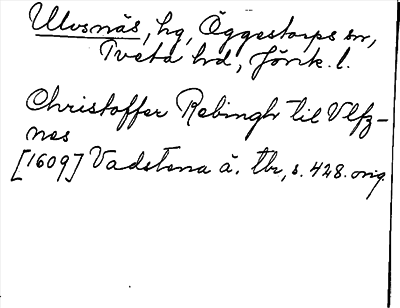 Ulvsnäs, hg, Öggestorps sn,
Tveta hd, Jönk. l.
Christoffer Rebingh til Vlfz-
nes
[1609] Vadstena ä. tbr, s. 428. orig.